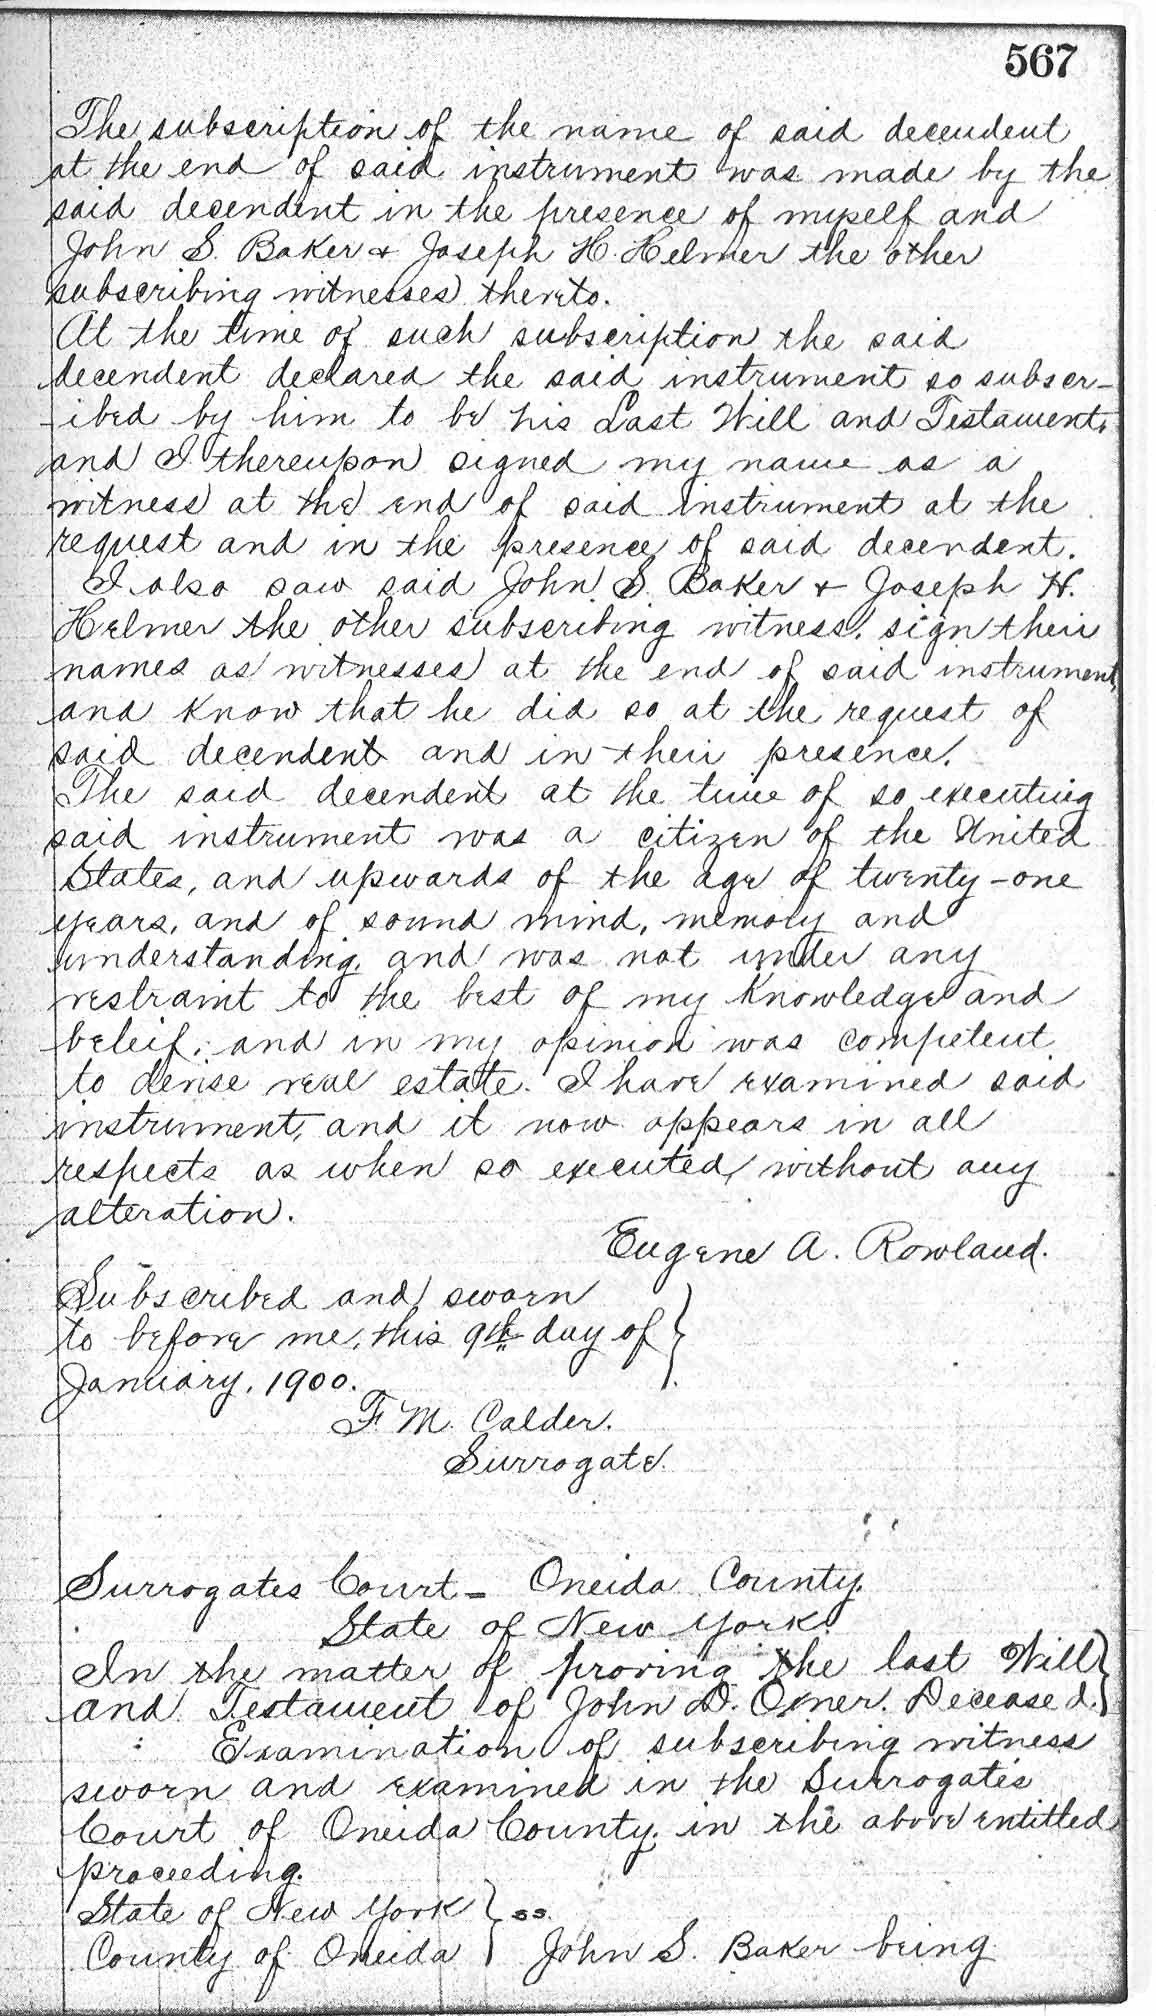 567
The subscription of the name of said decendent
at the end of said instrument was made by the
said decendent in the presence of myself and
John S. Baker & Joseph H. Helmer the other
subscribing witnesses thereto.
At the time of such subscription the said
decendent declared the said instrument so subscr-
-ibed by him to be his Last Will and Testament,
and I thereupon signed my name as a
witness at the end of said instrument at the
request and in the presence of said decendent.
I also saw said John S. Baker & Joseph H.
Helmer the other subscribing witness. sign their
names as witnesses at the end of said instrument,
and know that he did so at the request of
said decendent and in their presence.
The said decendent at the time of so executing
said instrument was a citizen of the United
States, and upwards of the age of twenty-one
years, and of sound mind, memory and
understanding, and was not under any
restraint to the best of my knowledge and
beleif, and in my opinion was competent
to devise real estate. I have examined said
instrument, and it now appears in all
respects as when so executed, without any
alteration.
Eugene A. Rowland.
Subscribed and sworn
to before me, this 9th day of
January, 1900.
F. M. Calder.
Surrogate.
Surrogates Court - Oneida County.
State of New York
In the matter of proving the last Will
and Testament of John D. Exner. Deceased.
Examination of subscribing witness
sworn and examined in the Surrogates
Court of Oneida County, in the above entitled
proceeding.
State of New York } ss.
County of Oneida } John S. Baker being